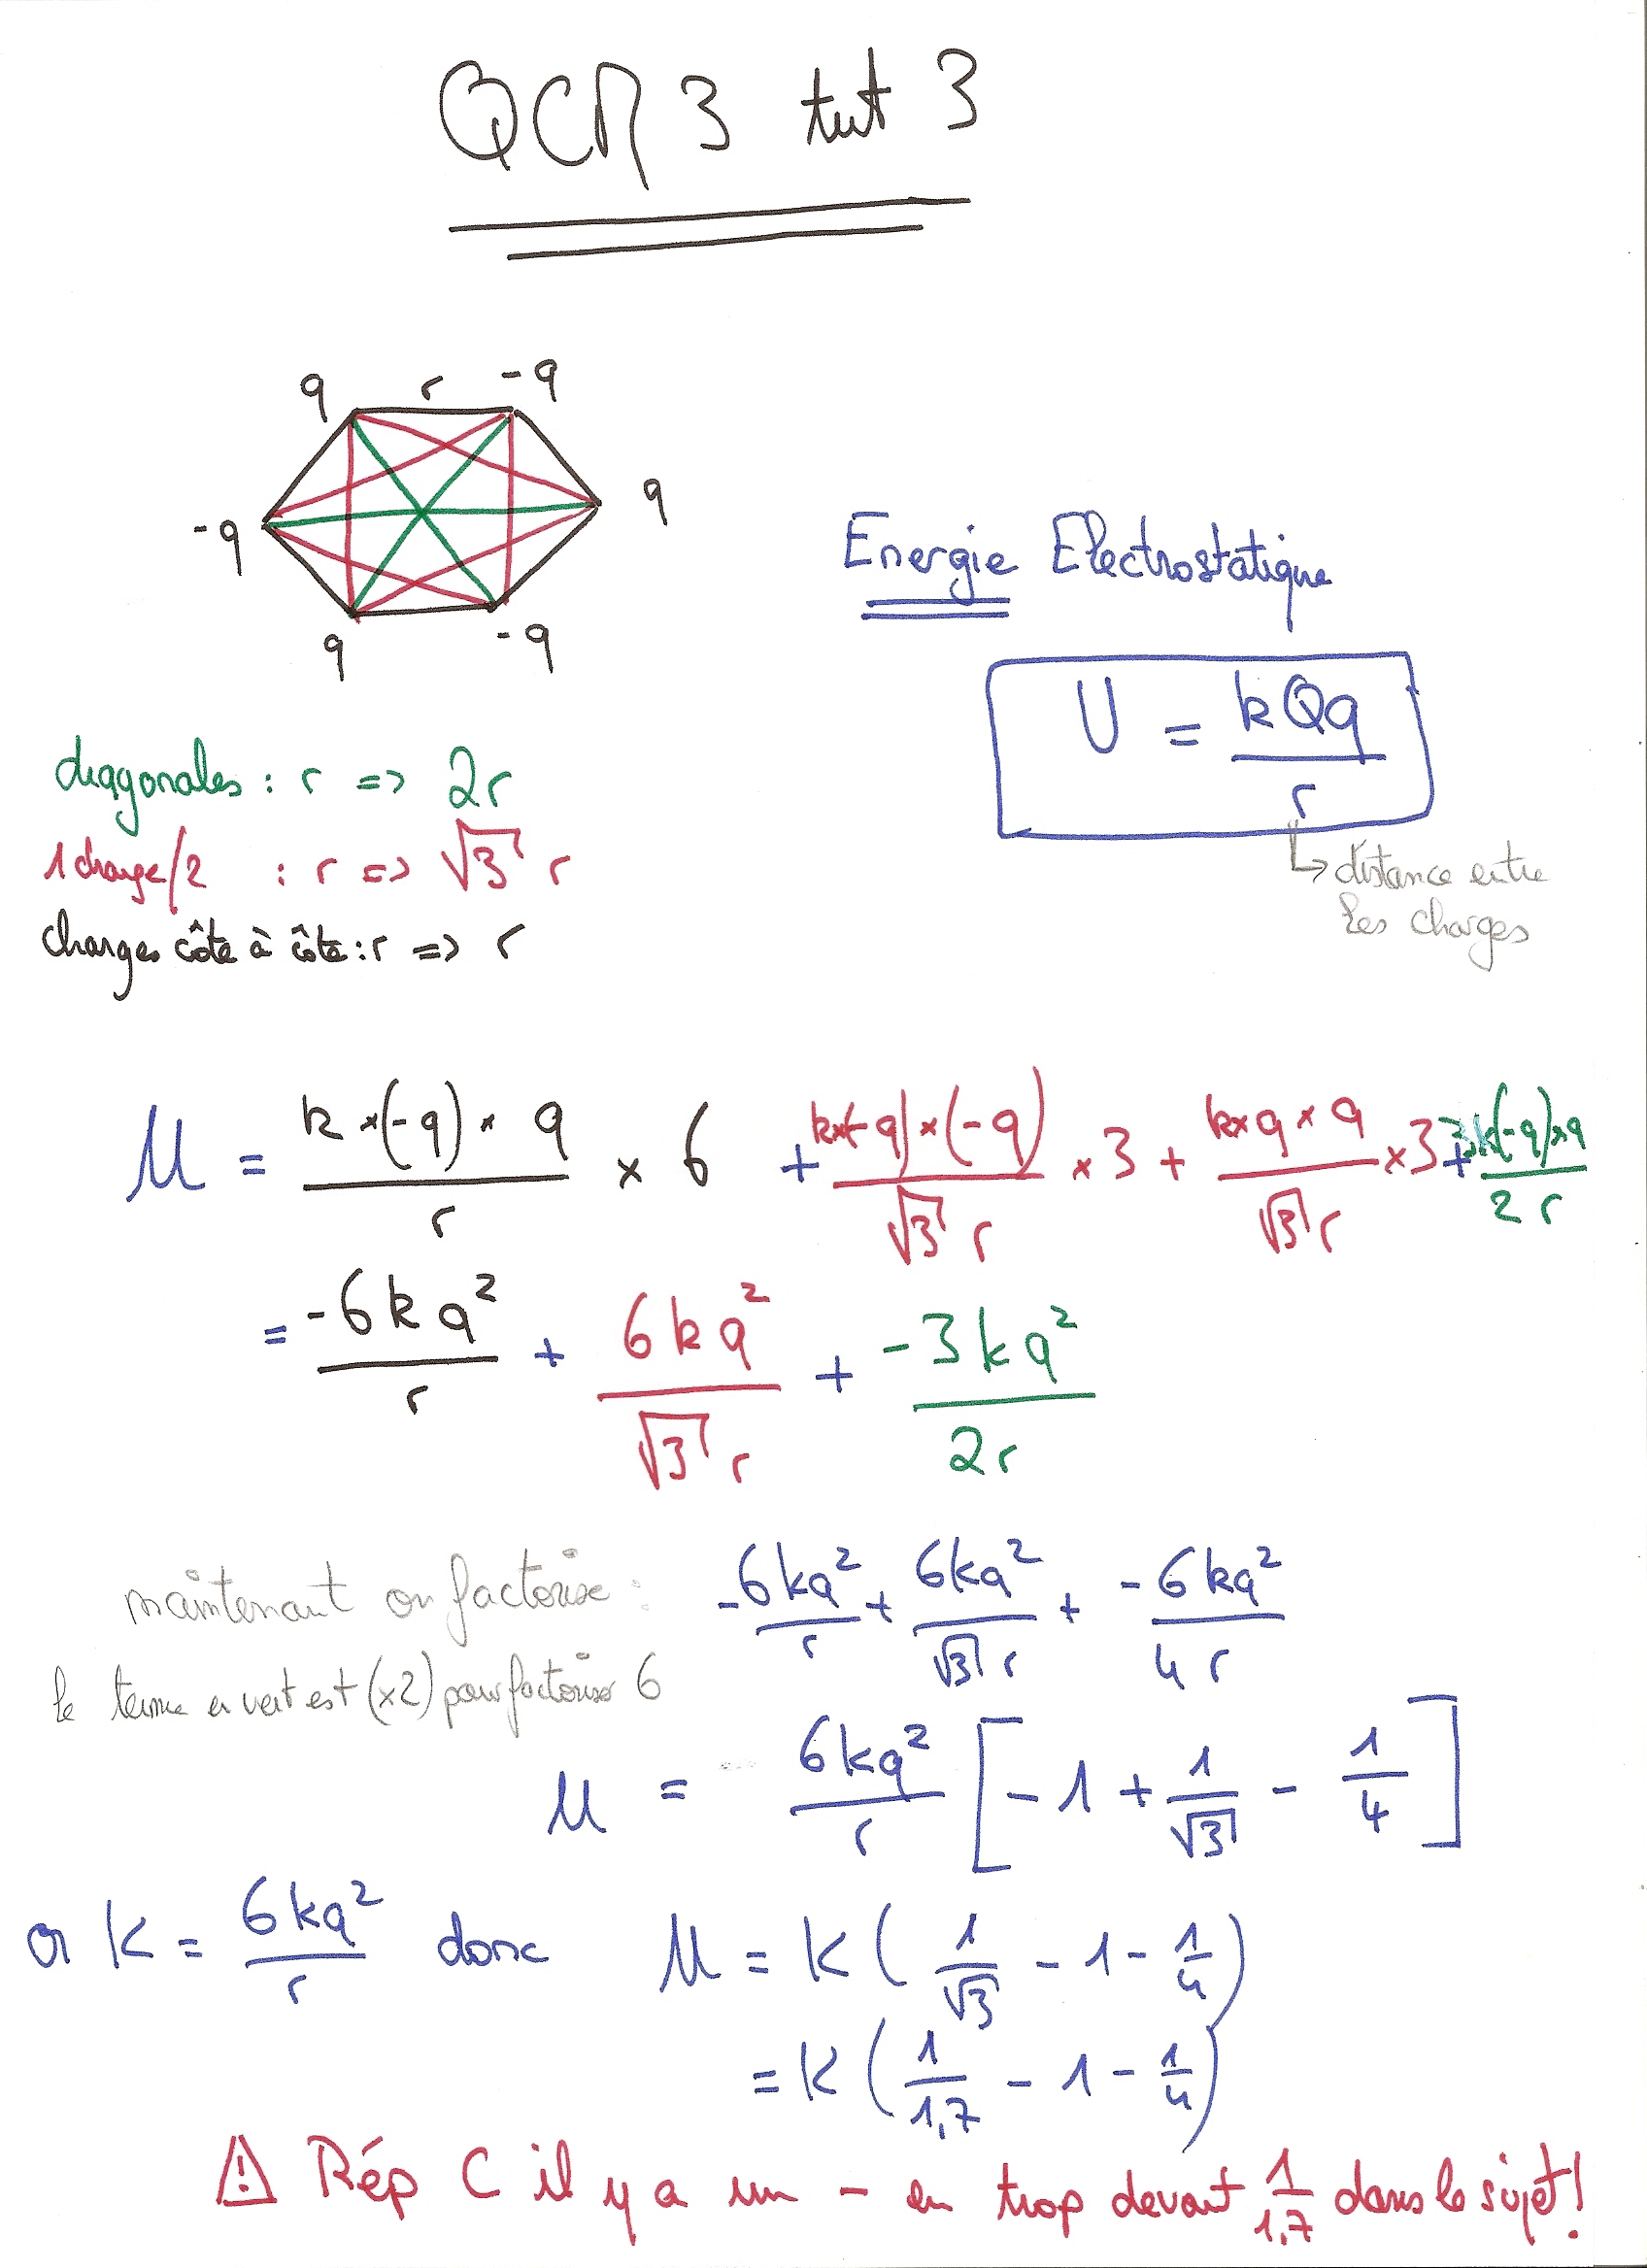 QCM 3 tut 3
q r -q
-q q
q -q
Energie Electrostatique
U = kQq / r
↳ distance entre
les charges
diagonales : r => 2r
1 charge/2 : r => √3 r
charges côte à côte : r => r
U = k×(-q)×q / r × 6 + k×(-q)×(-q) / √3 r × 3 + k×q×q / √3 r × 3 + 3k(-q)×q / 2r
= -6kq² / r + 6kq² / √3 r + -3kq² / 2r
maintenant on factorise : -6kq² / r + 6kq² / √3 r + -6kq² / 4r
le terme en vert est (x2) pour factoriser 6
U = 6kq² / r [ -1 + 1/√3 - 1/4 ]
or K = 6kq² / r donc U = K ( 1/√3 - 1 - 1/4 )
= K ( 1/1,7 - 1 - 1/4 )
⚠ Rép C il y a un - en trop devant 1/1,7 dans le sujet !